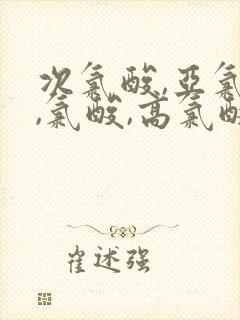 次氯酸,亚氯
,氯酸,高氯酸
崔述强